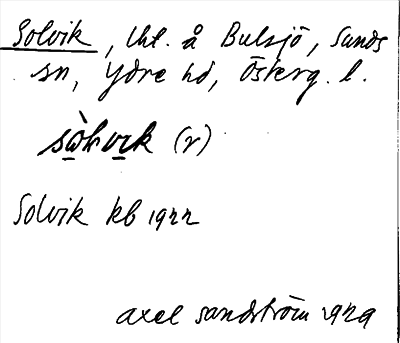 Solvik, lht. å Bulsjö, Sunds
sn, Ydre hd, Österg. l.
(r)
Solvik kb 1922
Axel Sandström 1929